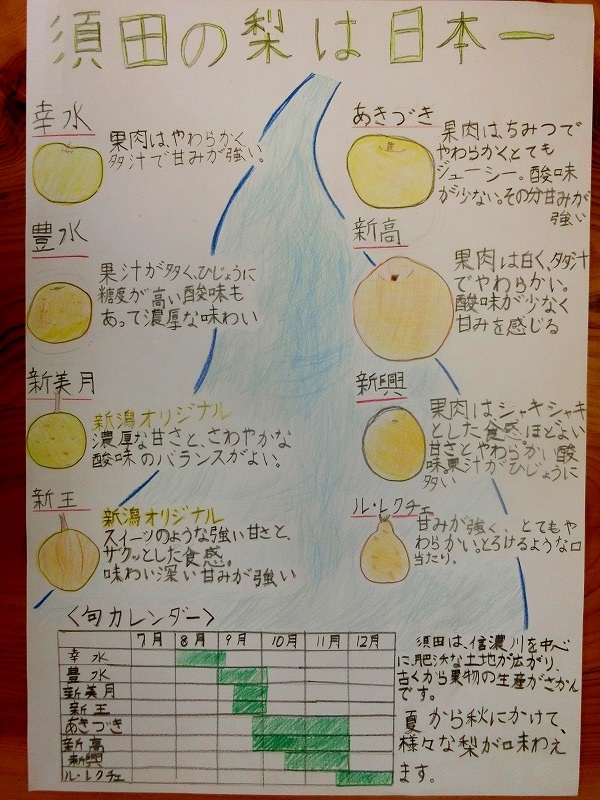 須田の梨は日本一
幸水
果肉は、やわらかく、
多汁で甘みが強い。
豊水
果汁が多く、ひじょうに
糖度が高い酸味も
あって濃厚な味わい
新美月
新潟オリジナル
濃厚な甘さと、さわやかな
酸味のバランスがよい。
新王
新潟オリジナル
スイーツのような強い甘さと、
サクッとした食感。
味わい深い甘みが強い
あきづき
果肉は、ちみつで
やわらかくとても
ジューシー。酸味
が少ない。その分甘みが
強い
新高
果肉は白く、多汁
でやわらかい。
酸味が少なく
甘みを感じる
新興
果肉はシャキシャキ
とした食感。ほどよい
甘さとやわらかい酸
味、果汁がひじょうに
多い
ル・レクチェ
甘みが強く、とてもや
わらかい。とろけるような口
当たり。
〈旬カレンダー〉
7月 8月 9月 10月 11月 12月
幸水
豊水
新美月
新王
あきづき
新高
新興
ル・レクチェ
須田は、信濃川を中心
に、肥沃な土地が広がり、
古くから果物の生産がさかん
です。
夏から秋にかけて、
様々な梨が味わえ
ます。